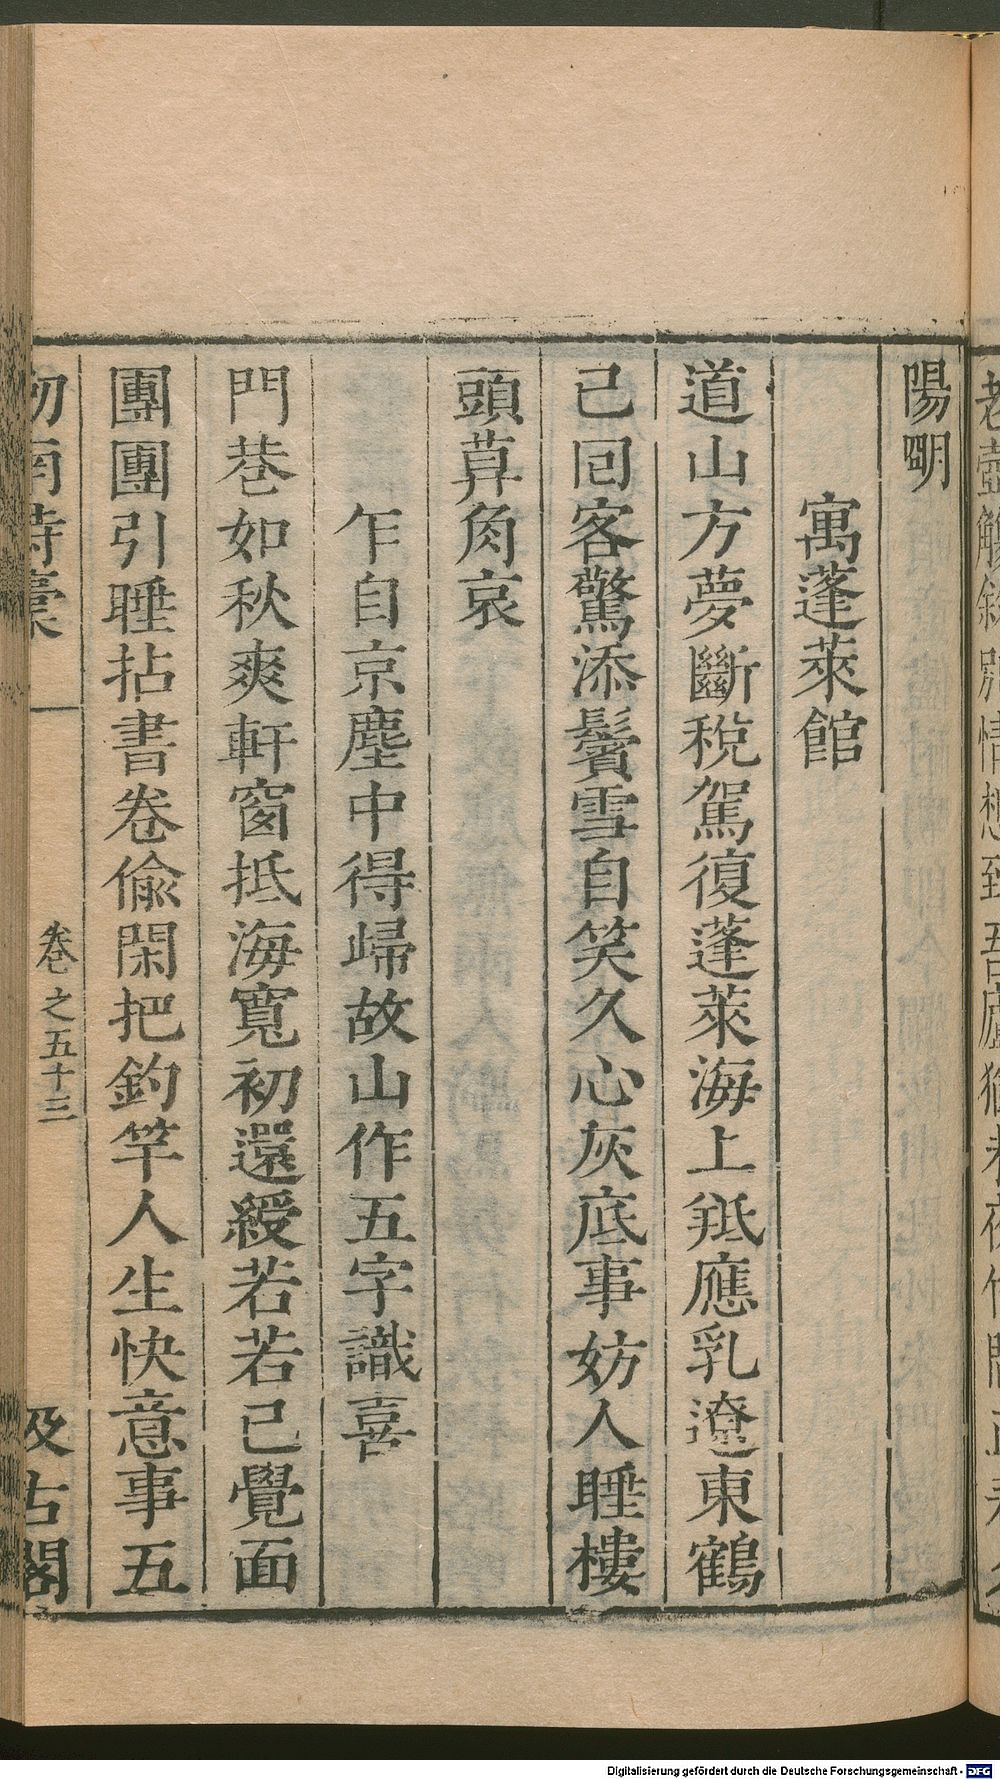 陽明
寓蓬萊館
道山方夢斷稅駕復蓬萊海上羝應乳遼東鶴
已囘客驚添鬢雪自笑久心灰底事妨人睡樓
頭莫角哀
乍自京塵中得歸故山作五字識喜
門巷如秋爽軒窗抵海寬初還綬若若已覺面
團團引睡拈書卷偸閑把釣竿人生快意事五
卷之五十三
及古閣
Digitalisierung gefördert durch die Deutsche Forschungsgemeinschaft - DFG